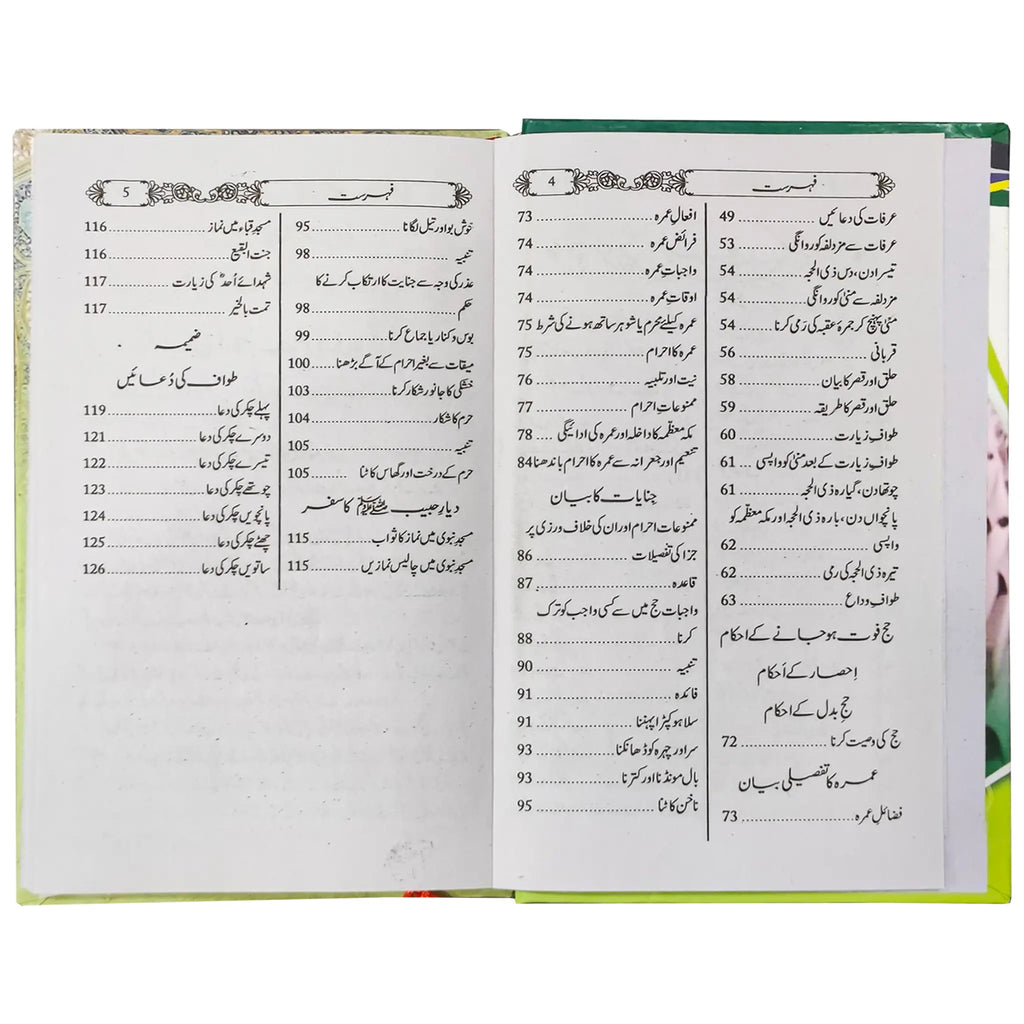 4
فہرست
عرفات کی دعائیں ........ 49
عرفات سے مزدلفہ کو روانگی ........ 53
تیسرا دن، دس ذی الحجہ ........ 54
مزدلفہ سے منیٰ کو روانگی ........ 54
منیٰ پہنچ کر جمرۂ عقبہ کی رَمی کرنا ........ 54
قربانی ........ 56
حلق اور قصر کا بیان ........ 58
حلق اور قصر کا طریقہ ........ 59
طوافِ زیارت ........ 60
طوافِ زیارت کے بعد منیٰ کو واپسی ... 61
چوتھا دن، گیارہ ذی الحجہ ........ 61
پانچواں دن، بارہ ذی الحجہ اور مکہ معظّمہ کو
واپسی ........ 62
تیرہ ذی الحجہ کی رمی ........ 62
طوافِ وداع ........ 63
حج فوت ہوجانے کے احکام
اِحصار کے اَحکام
حج بدل کے احکام
حج کی وصیت کرنا ........ 72
عمرہ کا تفصیلی بیان
فضائلِ عمرہ ........ 73
افعالِ عمرہ ........ 73
فرائض عمرہ ........ 74
واجباتِ عمرہ ........ 74
اوقاتِ عمرہ ........ 74
عمرہ کیلئے محرم یا شوہر ساتھ ہونے کی شرط 75
عمرہ کا احرام ........ 75
نیت اور تلبیہ ........ 76
ممنوعاتِ احرام ........ 77
مکہ معظّمہ کا داخلہ اور عمرہ کی ادائیگی .... 78
تنعیم اور جعرانہ سے عمرہ کا احرام باندھنا 84
جنایات کا بیان
ممنوعات احرام اور ان کی خلاف ورزی پر
جزا کی تفصیلات ........ 86
قاعدہ ........ 87
واجبات حج میں سے کسی واجب کو ترک
کرنا ........ 88
تنبیہ ........ 90
فائدہ ........ 91
سلا ہو کپڑا پہننا ........ 91
سر اور چہرہ کو ڈھانکنا ........ 93
بال مونڈنا اور کترنا ........ 93
ناخن کاٹنا ........ 95
5
فہرست
خوش بو اور تیل لگانا ........ 95
تنبیہ ........ 98
عذر کی وجہ سے جنایت کا ارتکاب کرنے کا
حکم ........ 98
بوس و کنار یا جماع کرنا ........ 99
میقات سے بغیر احرام کے آگے بڑھنا ..... 100
خشکی کا جانور شکار کرنا ........ 103
حرم کا شکار ........ 104
تنبیہ ........ 105
حرم کے درخت اور گھاس کاٹنا ........ 105
دیارِ حبیب ﷺ کا سفر
مسجدِ نبوی میں نماز کا ثواب ........ 115
مسجدِ نبوی میں چالیس نمازیں ........ 115
مسجدِ قباء میں نماز ........ 116
جنت البقیع ........ 116
شہدائے اُحدؓ کی زیارت ........ 117
تمت بالخیر ........ 117
ضمیمہ
طواف کی دُعائیں
پہلے چکر کی دعا ........ 119
دوسرے چکر کی دعا ........ 121
تیسرے چکر کی دعا ........ 122
چوتھے چکر کی دعا ........ 123
پانچویں چکر کی دعا ........ 124
چھٹے چکر کی دعا ........ 125
ساتویں چکر کی دعا ........ 126